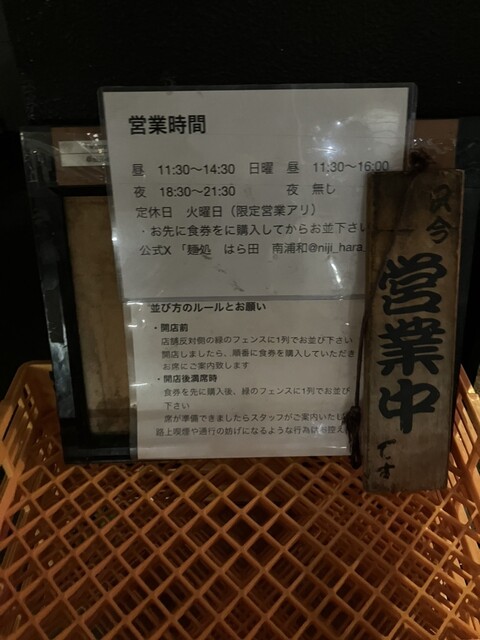 営業時間
昼 11:30〜14:30 日曜 昼 11:30〜16:00
夜 18:30〜21:30 夜 無し
定休日 火曜日（限定営業アリ）
・お先に食券をに購入してからお並下さい
公式X 「麺処 はら田 南浦和@niji_hara_
並び方のルールとお願い
・開店前
店舗反対側の緑のフェンスに1列でお並び下さい
開店しましたら、順番に食券を購入していただき
お席にご案内致します
・開店後満席時
食券を先に購入後、緑のフェンスに1列でお並び
下さい
席が準備できましたらスタッフがご案内いたし
路上喫煙や通行の妨げになるような行為は
只今
営業中
です